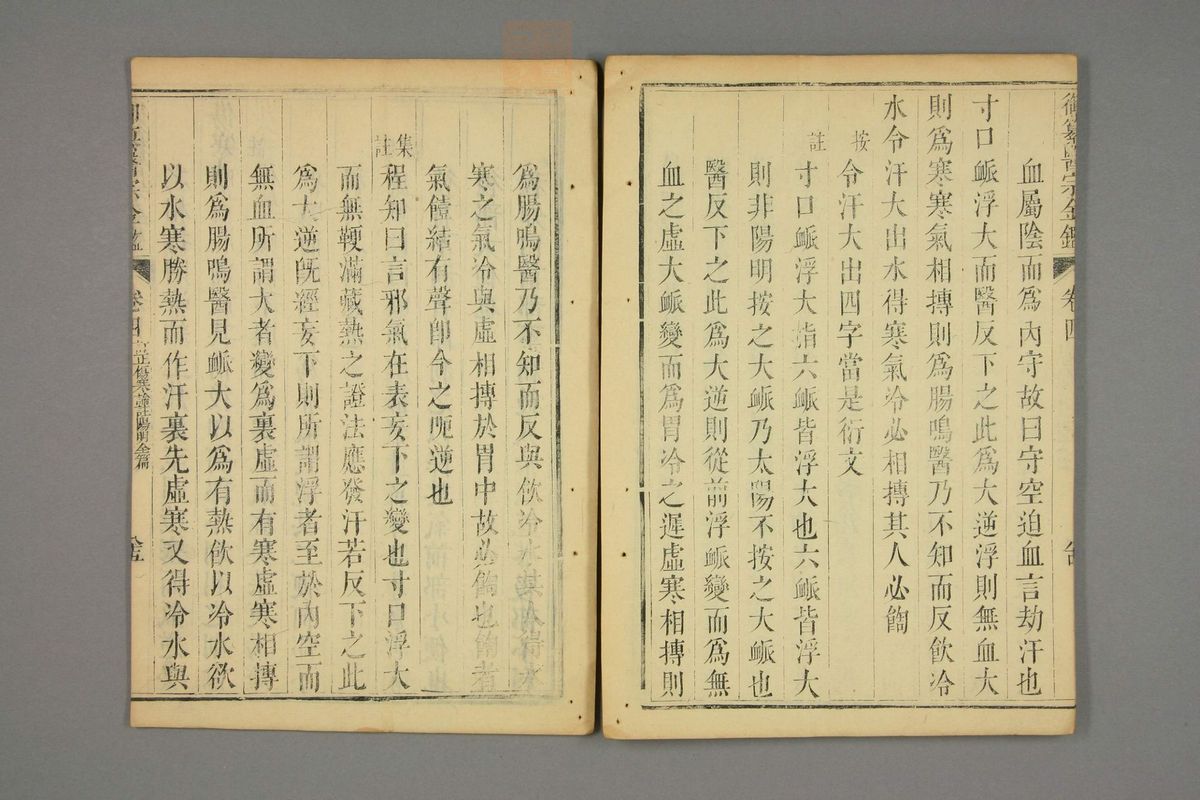 御纂醫宗金鑑 卷四
血屬陰而爲內守故曰守空迫血言劫汗也
寸口脈浮大而醫反下之此爲大逆浮則無血大
則爲寒寒氣相摶則爲腸鳴醫乃不知而反飲冷
水令汗大出水得寒氣冷必相摶其人必䭇
按
令汗大出四字當是衍文
註
寸口脈浮大指六脈皆浮大也六脈皆浮大
則非陽明按之大脈乃太陽不按之大脈也
醫反下之此爲大逆則從前浮脈變而爲無
血之虛大脈變而爲胃冷之遲虛寒相摶則
爲腸鳴醫乃不知而反與飲冷水
寒之氣冷與虛相摶於胃中故必䭇也䭇者
氣饐結有聲卽今之呃逆也
集註
程知曰言邪氣在表妄下之變也寸口浮大
而無鞕滿藏熱之證法應發汗若反下之此
爲大逆旣經妄下則所謂浮者至於內空而
無血所謂大者變爲裏虛而有寒虛寒相摶
則爲腸鳴醫見脈大以爲有熱飲以冷水欲
以水寒勝熱而作汗裏先虛寒又得冷水與
卷四 訂正傷寒論註陽明全篇